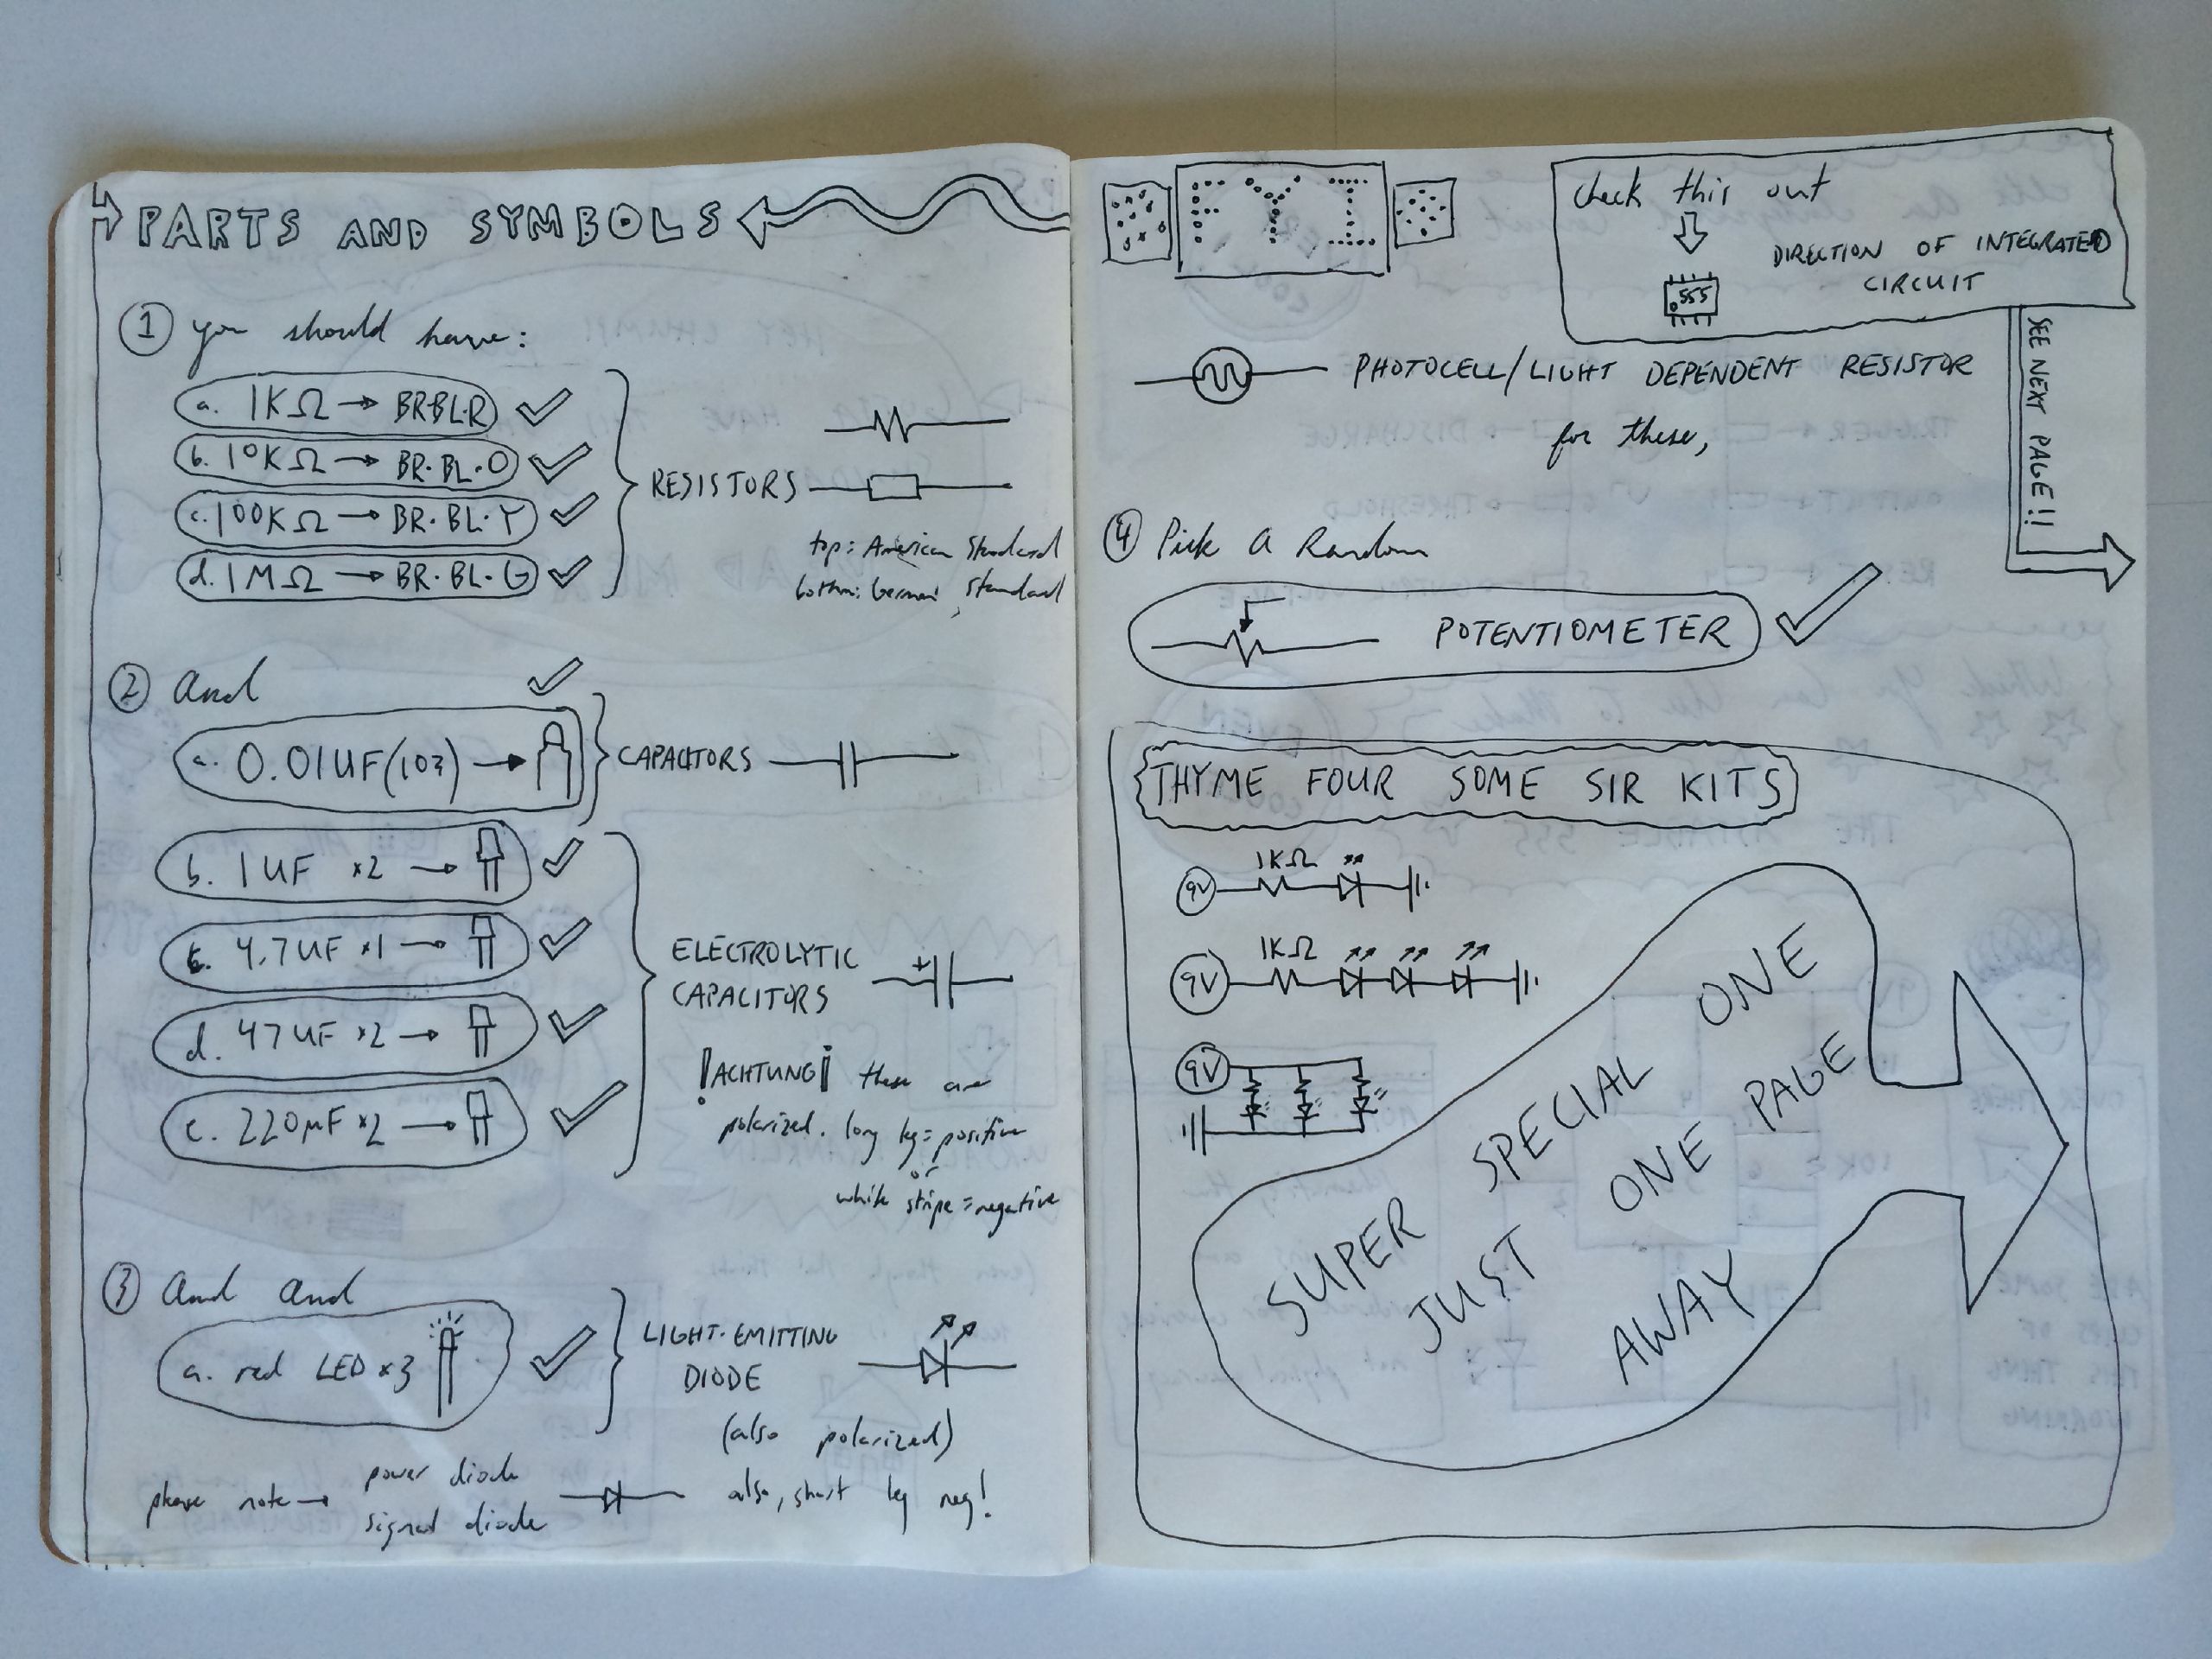 PARTS AND SYMBOLS
① you should have:
a. 1KΩ → BR·BL·R
b. 10KΩ → BR·BL·O
c. 100KΩ → BR·BL·Y
d. 1MΩ → BR·BL·G
RESISTORS
top: American Standard
bottom: German Standard
② And
a. 0.01UF(103) →
CAPACITORS
b. 1UF x2 →
c. 4.7UF x1 →
d. 47UF x2 →
e. 220µF x2 →
ELECTROLYTIC
CAPACITORS
!ACHTUNG! these are
polarized. long leg = positive
or
white stripe = negative
③ And and
a. red LED x3
LIGHT-EMITTING
DIODE
(also polarized)
also, short leg neg!
please note → power diode
signal diode
FYI
check this out
555
DIRECTION OF INTEGRATED
CIRCUIT
SEE NEXT PAGE!!
PHOTOCELL/LIGHT DEPENDENT RESISTOR
for these,
④ Pick A Random
POTENTIOMETER
THYME FOUR SOME SIR KITS
9V 1KΩ
9V 1KΩ
9V
SUPER SPECIAL ONE
JUST ONE PAGE
AWAY